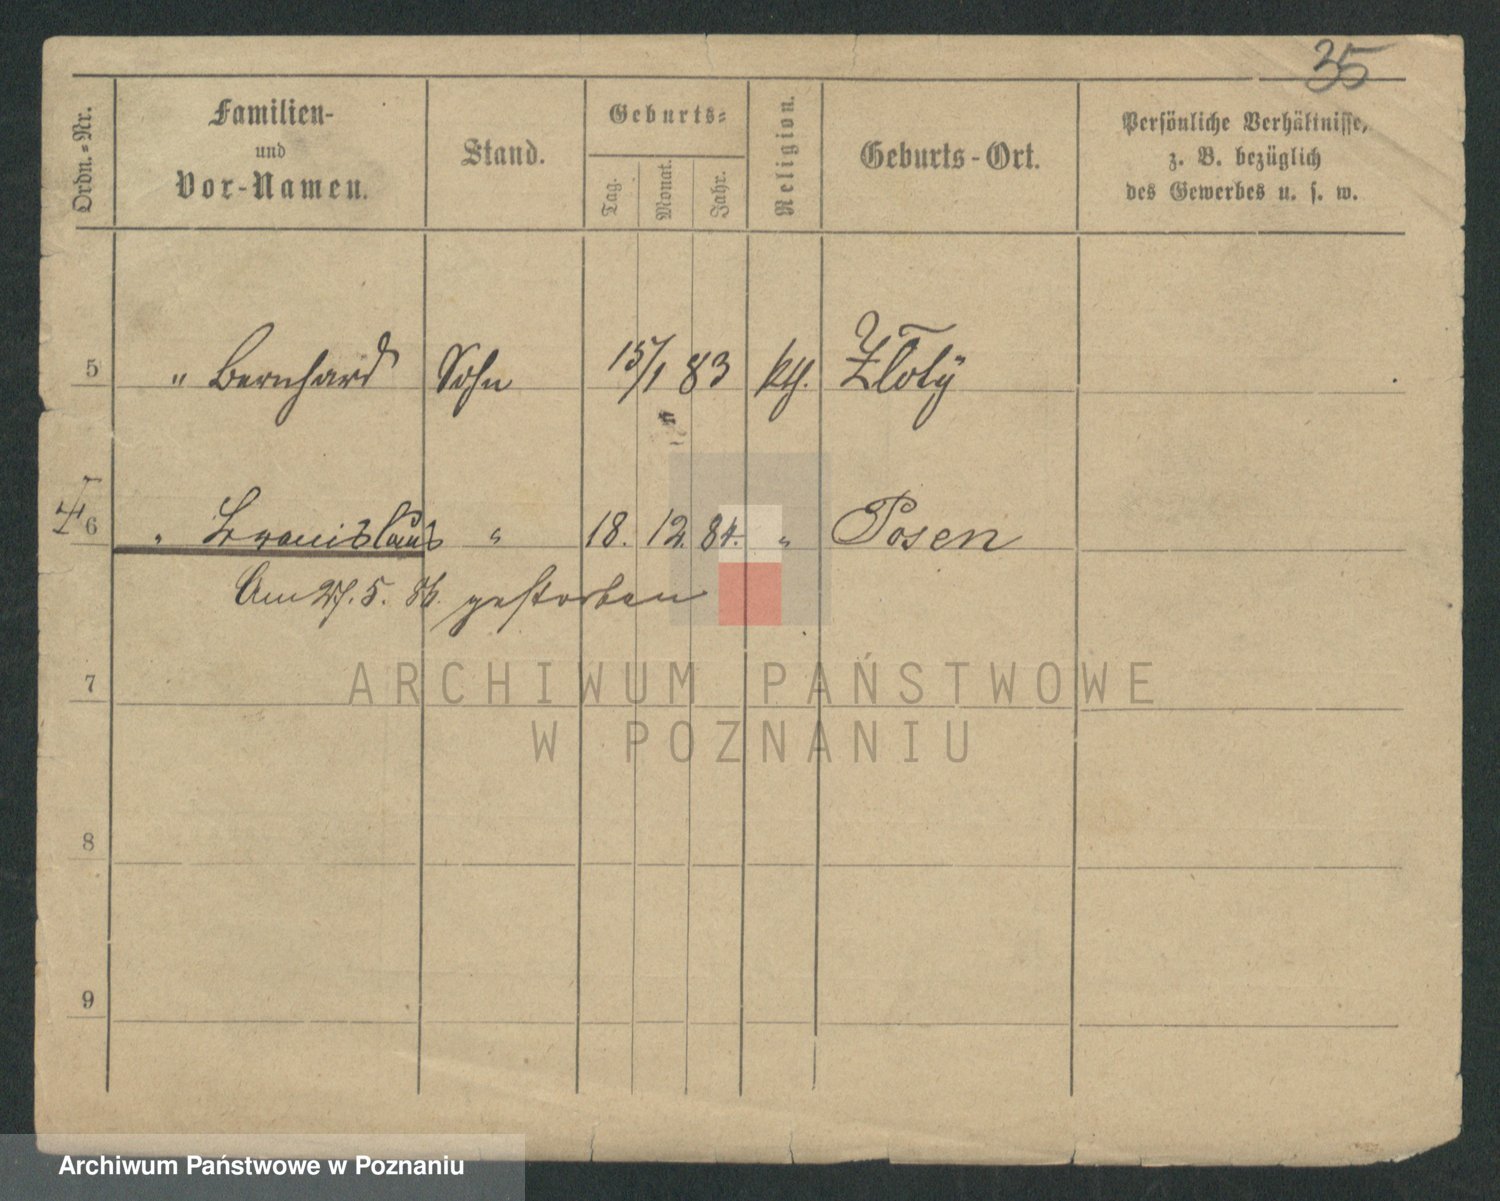 35
Ordn.-Nr.
Familien-
und
Vor-Namen.
Stand.
Geburts-
Tag.
Monat.
Jahr.
Religion.
Geburts-Ort.
Persönliche Verhältnisse,
z. B. bezüglich
des Gewerbes u. s. w.
5 " Bernhard Sohn 15/1 83 kth. Zlotÿ
6 " Bronislaus " 18. 12. 84. " Posen
Am 27. 5. 86. gestorben
7
8
9
ARCHIWUM PAŃSTWOWE
W POZNANIU
Archiwum Państwowe w Poznaniu